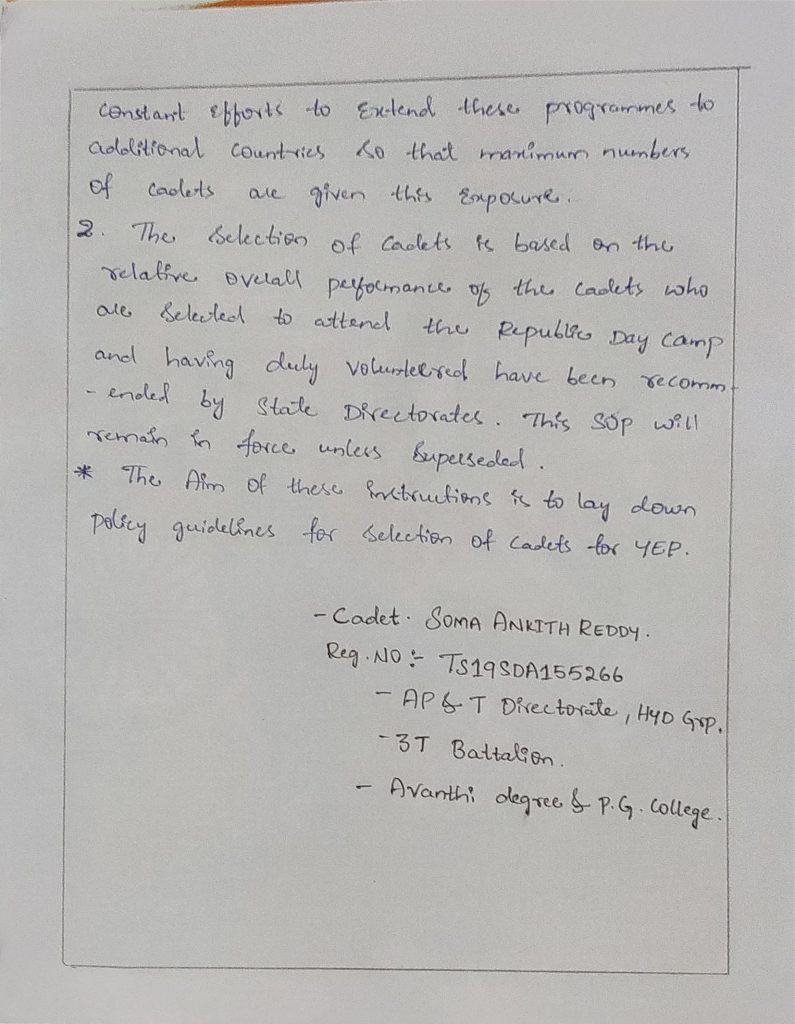 constant efforts to Extend these programmes to
additional countries so that maximum numbers
of cadets are given this Exposure.
2. The Selection of Cadets is based on the
relative overall performance of the Cadets who
are Selected to attend the Republic Day Camp
and having duly volunteered have been recomm
- ended by State Directorates. This SOP will
remain in force unless Superseded.
* The Aim of these instructions is to lay down
policy guidelines for Selection of Cadets for YEP.
- Cadet. SOMA ANKITH REDDY.
Reg. NO :- TS19SDA155266
- AP & T Directorate, HYD Grp.
- 3T Battalion.
- Avanthi degree & P.G. College.